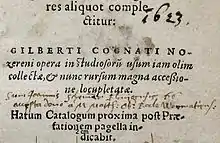 res aliquot comple
ctitur:
1623
GILBERTI COGNATI NO-
zereni opera in studiosorũ usum iam olim
collectæ, & nunc rursum magna accessio-
ne locupletatæ.
Sum Joannis
dono
Harum Catalogum proxima post Præ-
fationem pagella in-
dicabit.